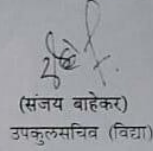 (संजय बाहेकर)
उपकुलसचिव (विद्या)